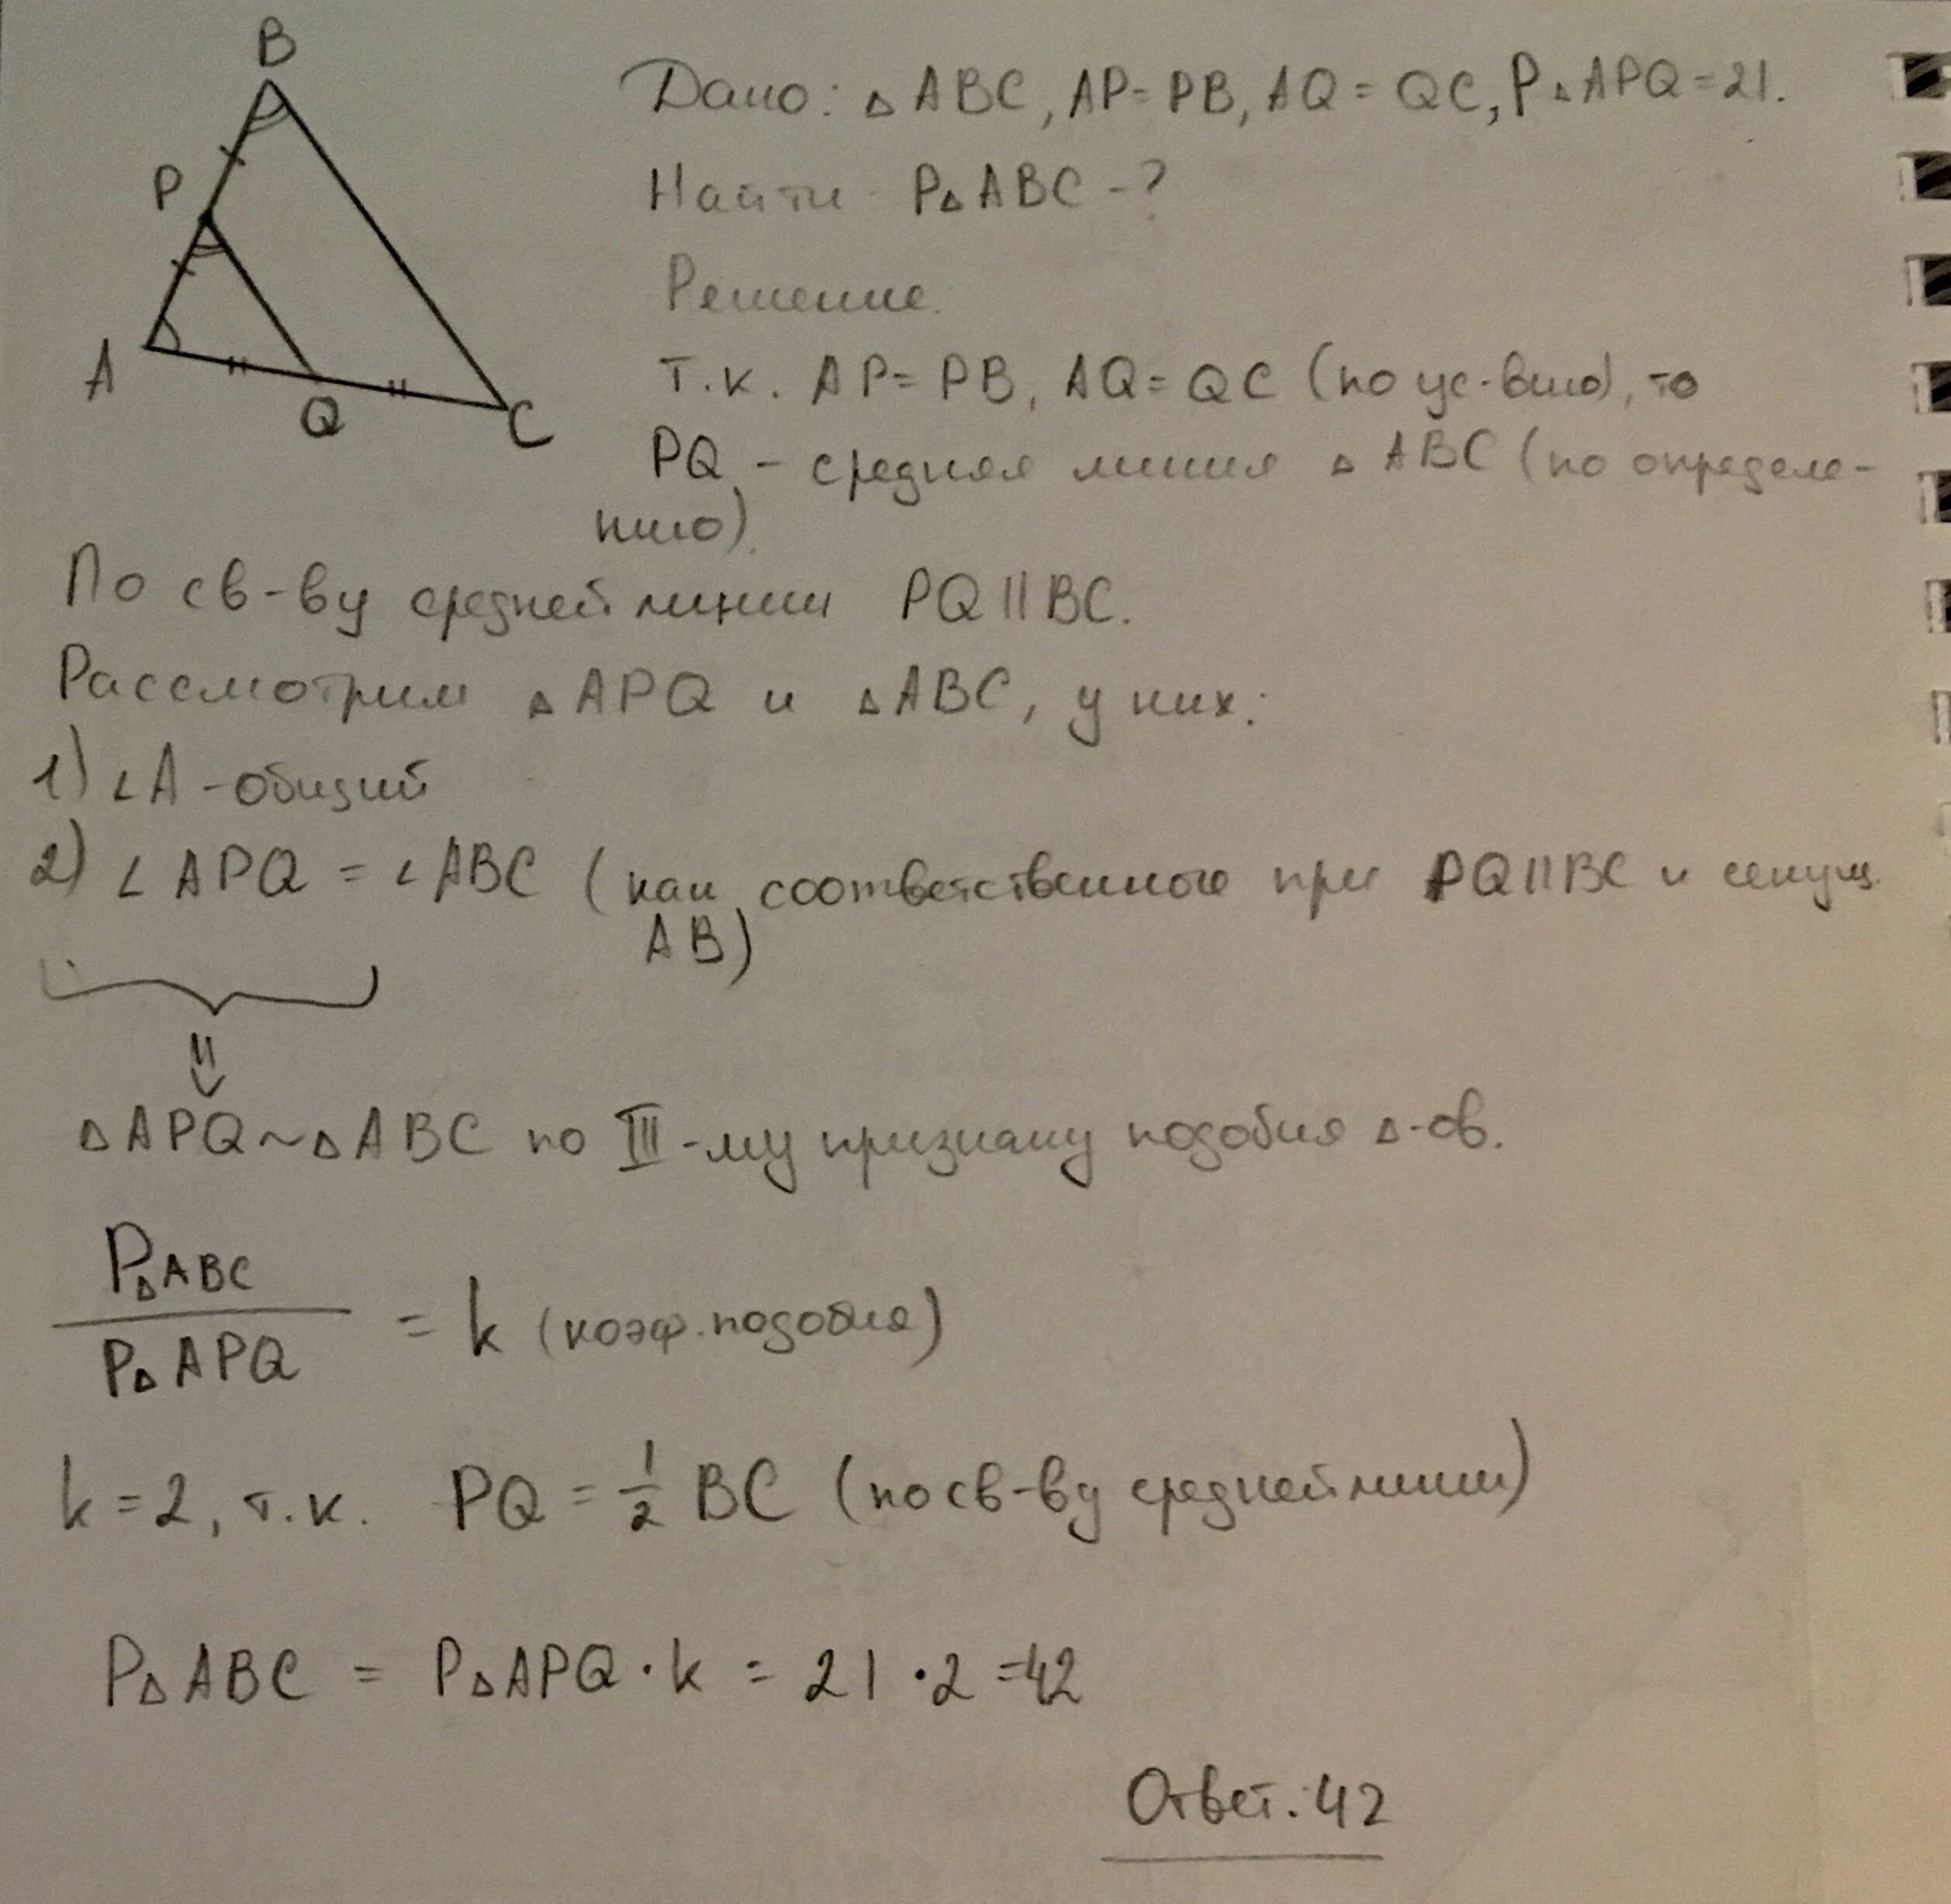 B
P
A
Q
C
Дано: △ABC, AP=PB, AQ=QC, P△APQ=21.
Найти P△ABC-?
Решение.
Т.к. AP=PB, AQ=QC (по ус-вию), то
PQ - средняя линия △ABC (по определе-
нию).
По св-ву средней линии PQ||BC.
Рассмотрим △APQ и △ABC, у них:
1) ∠A - общий
2) ∠APQ = ∠ABC (как соответственные при PQ||BC и секущ.
AB)
⇓
△APQ~△ABC по III-му признаку подобия △-ов.
P△ABC
P△APQ
= k (коэф. подобия)
k=2, т.к. PQ = 1/2 BC (по св-ву средней линии)
P△ABC = P△APQ · k = 21 · 2 = 42
Ответ: 42